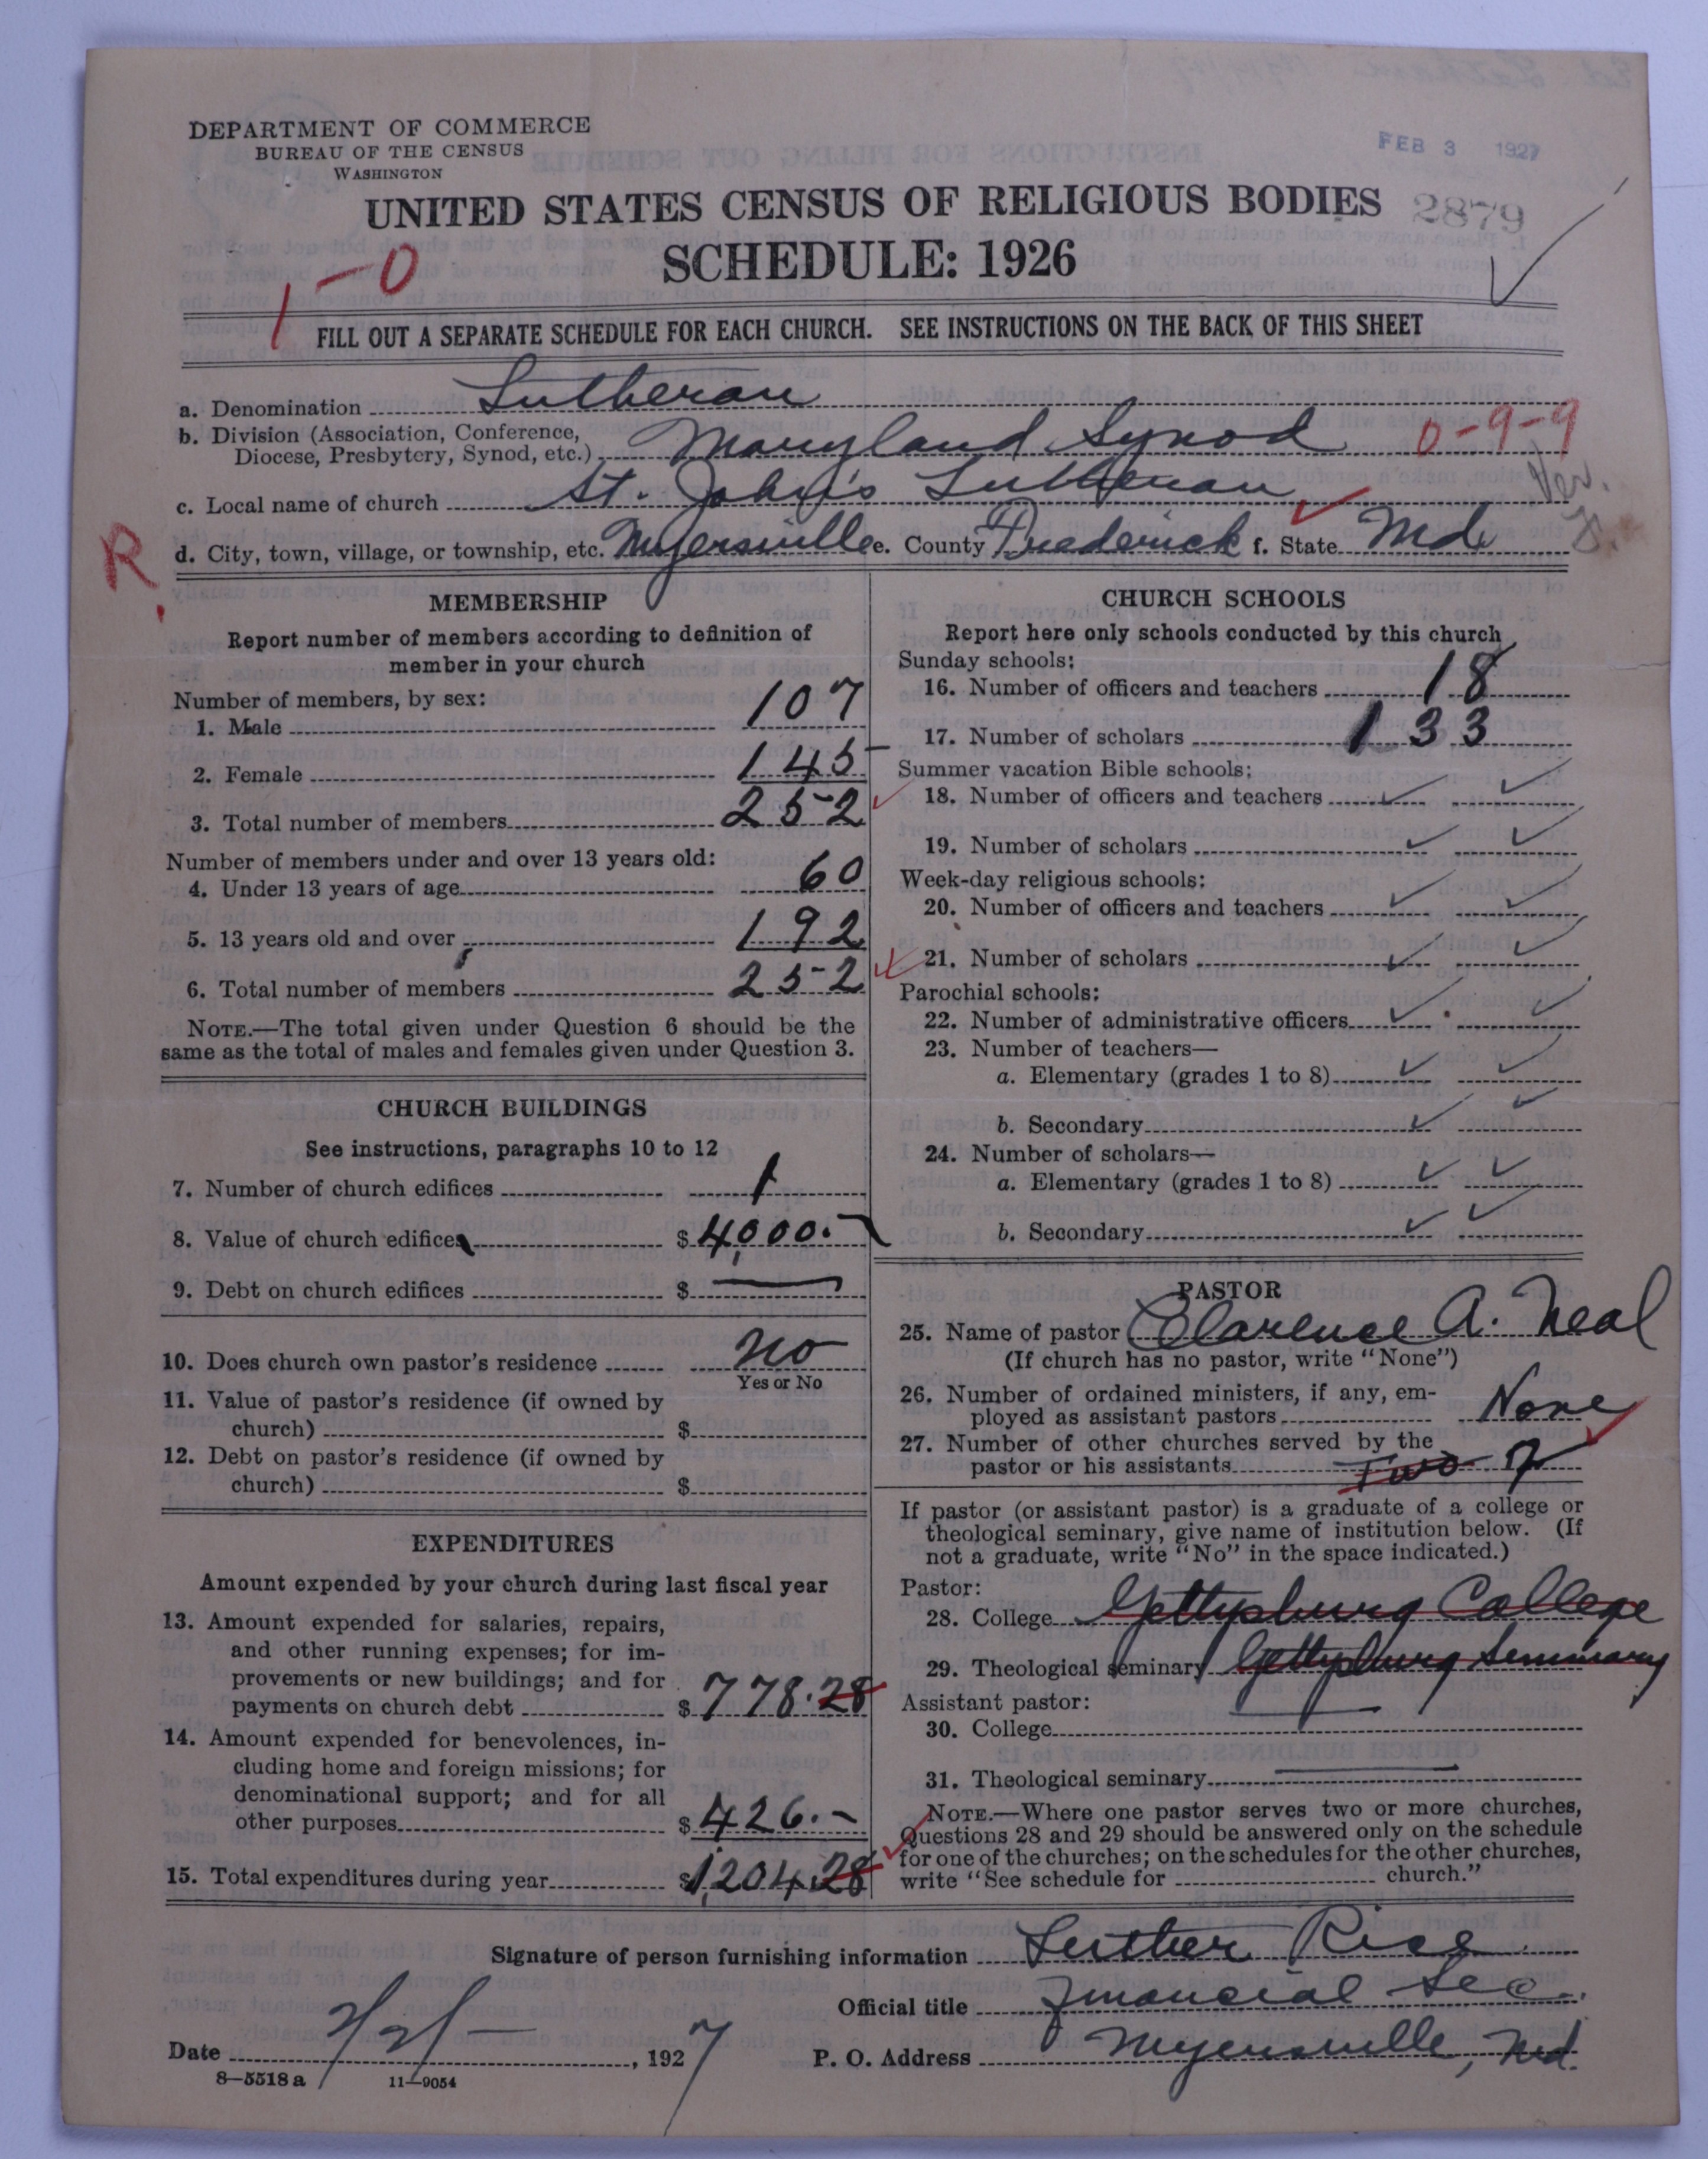 DEPARTMENT OF COMMERCE
BUREAU OF THE CENSUS
WASHINGTON
FEB 3 1927
UNITED STATES CENSUS OF RELIGIOUS BODIES
2879
SCHEDULE: 1926
1-0
FILL OUT A SEPARATE SCHEDULE FOR EACH CHURCH. SEE INSTRUCTIONS ON THE BACK OF THIS SHEET
a. Denomination Lutheran
b. Division (Association, Conference,
Diocese, Presbytery, Synod, etc.) Maryland Synod 0-9-9
c. Local name of church St. John's Lutheran Ver.
R. d. City, town, village, or township, etc. Myersville e. County Frederick f. State Md.
MEMBERSHIP
Report number of members according to definition of
member in your church
Number of members, by sex:
1. Male 107
2. Female 145
3. Total number of members 252
Number of members under and over 13 years old:
4. Under 13 years of age 60
5. 13 years old and over 192
6. Total number of members 252
NOTE.—The total given under Question 6 should be the
same as the total of males and females given under Question 3.
CHURCH BUILDINGS
See instructions, paragraphs 10 to 12
7. Number of church edifices 1
8. Value of church edifices $ 4,000.-
9. Debt on church edifices $ —
10. Does church own pastor's residence No
Yes or No
11. Value of pastor's residence (if owned by
church) $
12. Debt on pastor's residence (if owned by
church) $
EXPENDITURES
Amount expended by your church during last fiscal year
13. Amount expended for salaries, repairs,
and other running expenses; for im-
provements or new buildings; and for
payments on church debt $ 778.28
14. Amount expended for benevolences, in-
cluding home and foreign missions; for
denominational support; and for all
other purposes $ 426.-
15. Total expenditures during year $ 1,204.28
CHURCH SCHOOLS
Report here only schools conducted by this church
Sunday schools:
16. Number of officers and teachers 18
17. Number of scholars 133
Summer vacation Bible schools:
18. Number of officers and teachers
19. Number of scholars
Week-day religious schools:
20. Number of officers and teachers
21. Number of scholars
Parochial schools:
22. Number of administrative officers
23. Number of teachers—
a. Elementary (grades 1 to 8)
b. Secondary
24. Number of scholars—
a. Elementary (grades 1 to 8)
b. Secondary
PASTOR
25. Name of pastor Clarence A. Neal
(If church has no pastor, write "None")
26. Number of ordained ministers, if any, em-
ployed as assistant pastors None
27. Number of other churches served by the
pastor or his assistants Two
If pastor (or assistant pastor) is a graduate of a college or
theological seminary, give name of institution below. (If
not a graduate, write "No" in the space indicated.)
Pastor:
28. College Gettysburg College
29. Theological seminary Gettysburg Seminary
Assistant pastor:
30. College
31. Theological seminary
NOTE.—Where one pastor serves two or more churches,
Questions 28 and 29 should be answered only on the schedule
for one of the churches; on the schedules for the other churches,
write "See schedule for church."
Signature of person furnishing information Luther Rice
Official title Financial Sec.
Date 2/2/ , 1927 P. O. Address Myersville, Md.
8—5518 a 11—9054